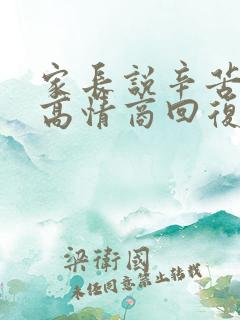 家長說辛苦
高情商回復
梁衛國
未经同意禁止转载